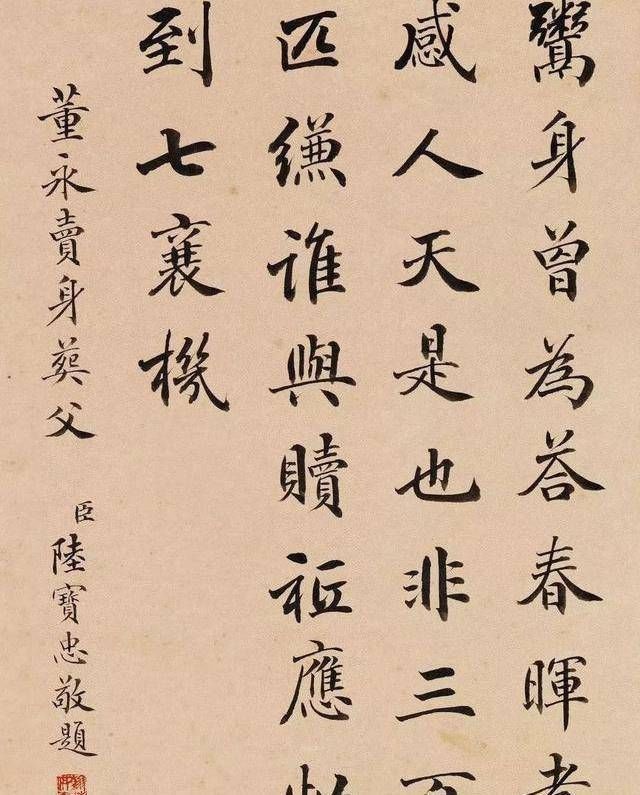 鬻身曾為荅春暉孝
感人天是也非三百
匹縑誰與贖秪應
到七襄機
董永賣身葬父
臣陸寶忠敬題